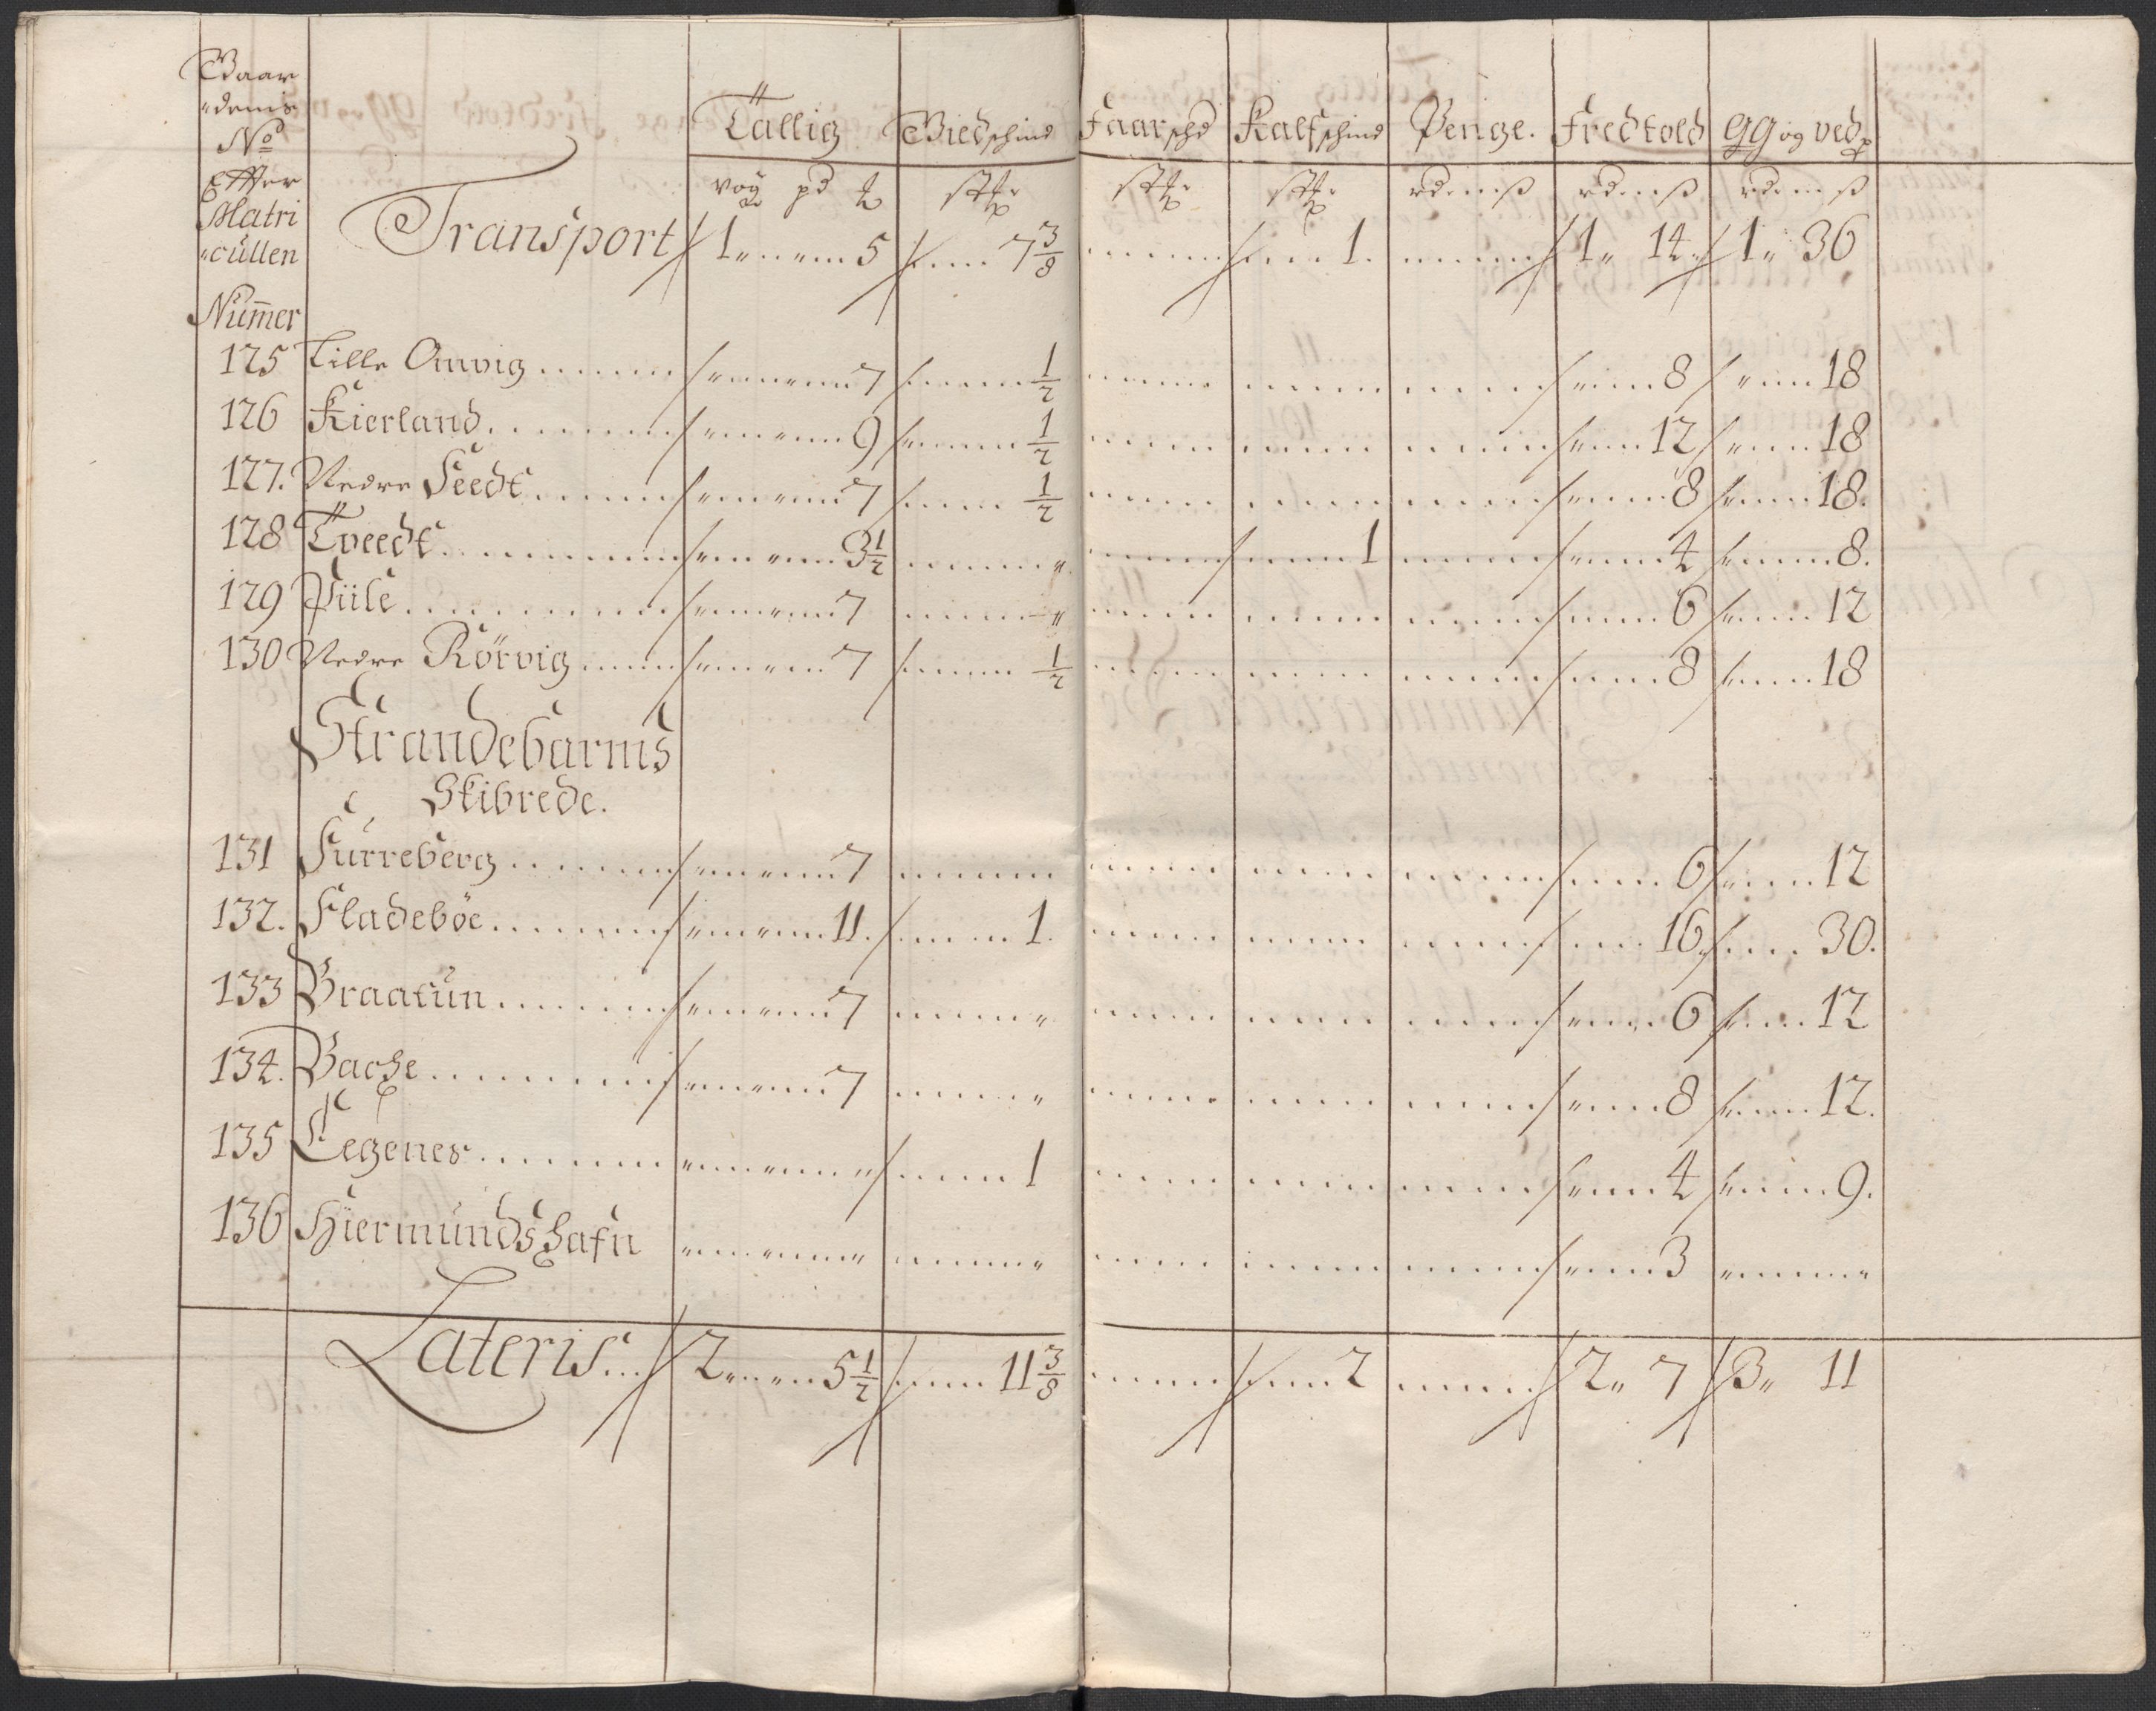 Gaar
denis
No
Effter
Matri
cullen
Nummer
Tallig Giedschind Faarschd Kalfschind Penge. Fredtold gg og ved
vog pd
Transport 1 5 7 3/8 1. 1 14 1 36
125 Lille Omvig 7 1/2 8 18
126 Kierland 9 1/2 12 18
127. Nedre Seedt 7 1/2 8 18.
128 Tveedt 3 1/2 1 4 8.
129 Piile 7 6 12
130 Nedre Rörvig 7 1/2 8 18
Strandebarms
Skibrede.
131 Furreberg 7 6 12
132. Fladeböe 11. 1. 16 30.
133 Braatun 7 6 12
134. Bache 7 8 12.
135 Legenes 1 4 9.
136 Hiermundshafn 3
Lateris 2 5 1/2 11 3/8 2 2 7 3 11